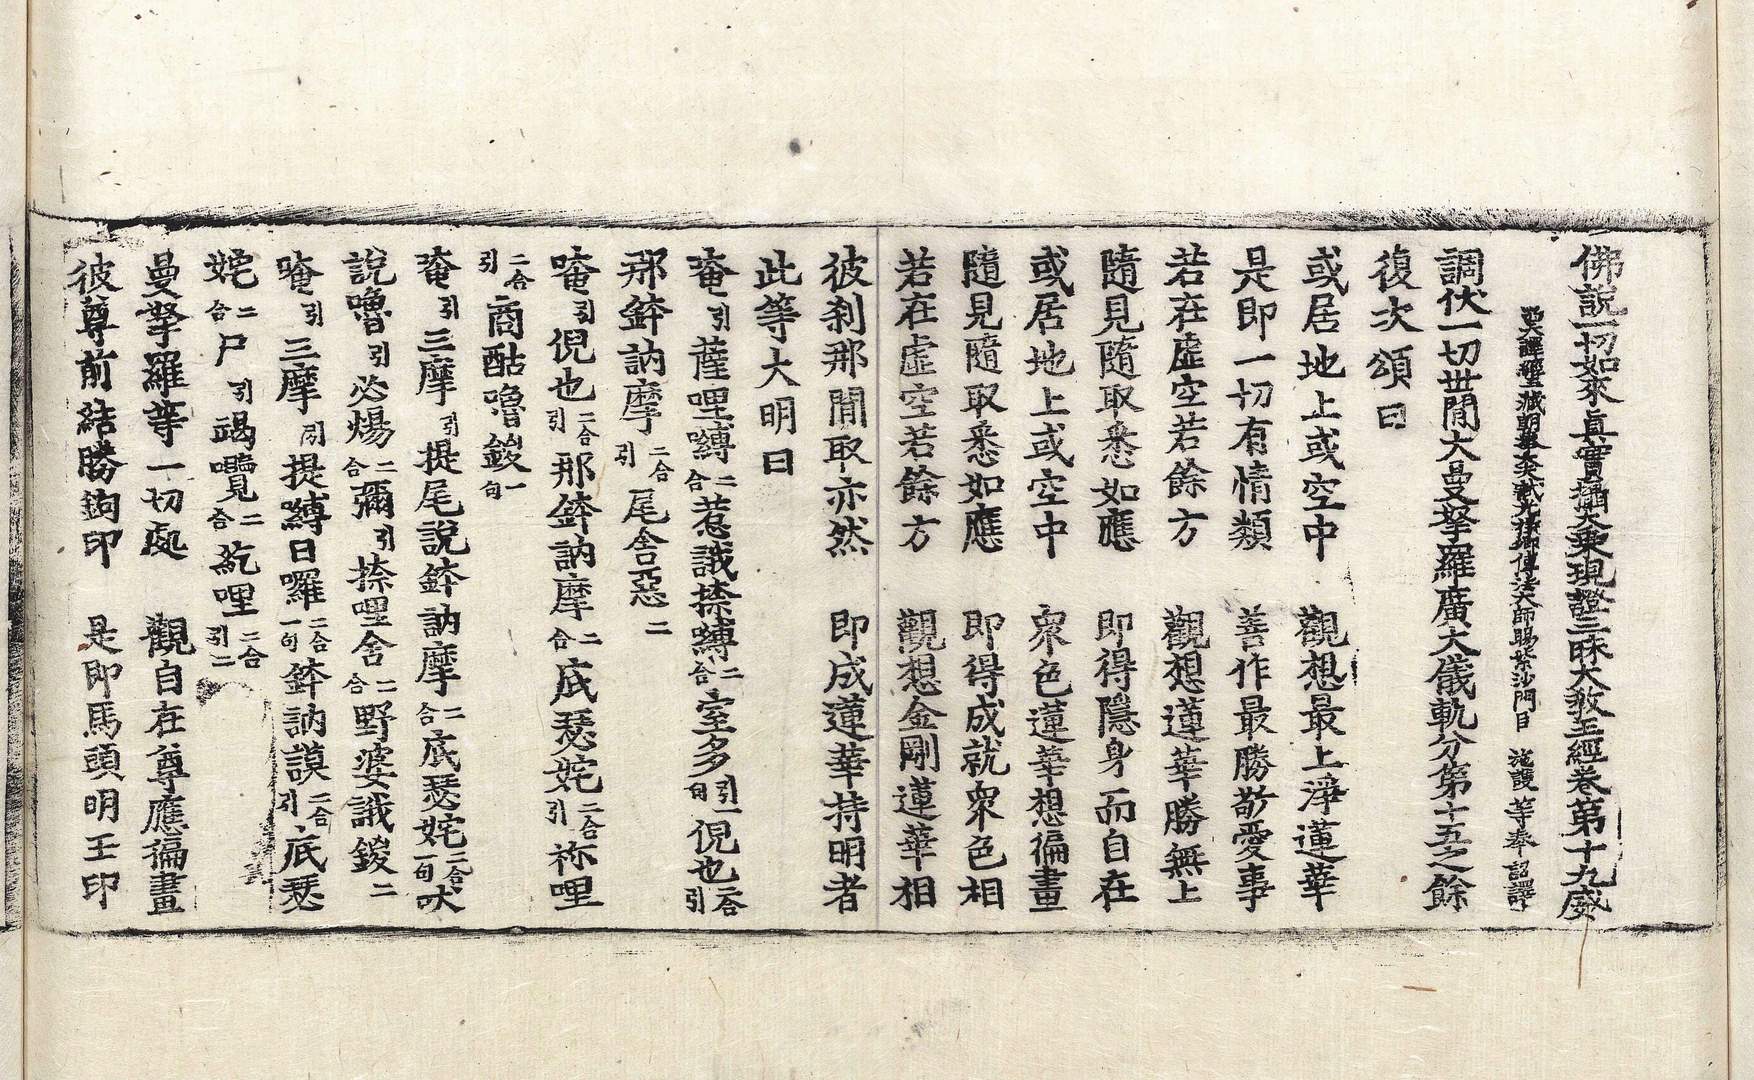 佛說一切如來眞實攝大乘現證三昧大教王經卷第十九 威
西天譯經三藏朝奉大夫試光祿卿傳法大師賜紫沙門臣 施護 等奉 詔譯
調伏一切世閒大曼拏羅廣大儀軌分第十五之餘
復次頌曰
或居地上或空中 觀想最上淨蓮華
是即一切有情類 善作最勝敬愛事
若在虛空若餘方 觀想蓮華勝無上
隨見隨取悉如應 即得隱身而自在
或居地上或空中 衆色蓮華想徧畫
隨見隨取悉如應 即得成就衆色相
若在虛空若餘方 觀想金剛蓮華相
彼剎那閒取亦然 即成蓮華持明者
此等大明曰
唵引薩哩嚩二合惹誐捺嚩二合室多引一句倪也二合引
那鉢訥摩二合引尾舍惡二
唵引倪也二合引那鉢訥摩二合底瑟姹二合引祢哩
二合引商酤嚕鍐一句
唵引三摩引提尾說鉢訥摩二合底瑟姹二合一句吠
說嚕引必煬二合彌引捺哩舍二合野婆誐鍐二
唵引三摩引提嚩日囉二合一句鉢訥謨二合引底瑟
姹二合尸引竭囕二合訖哩二合引二
曼拏羅等一切處 觀自在尊應徧畫
彼尊前結勝鉤印 是即馬頭明王印